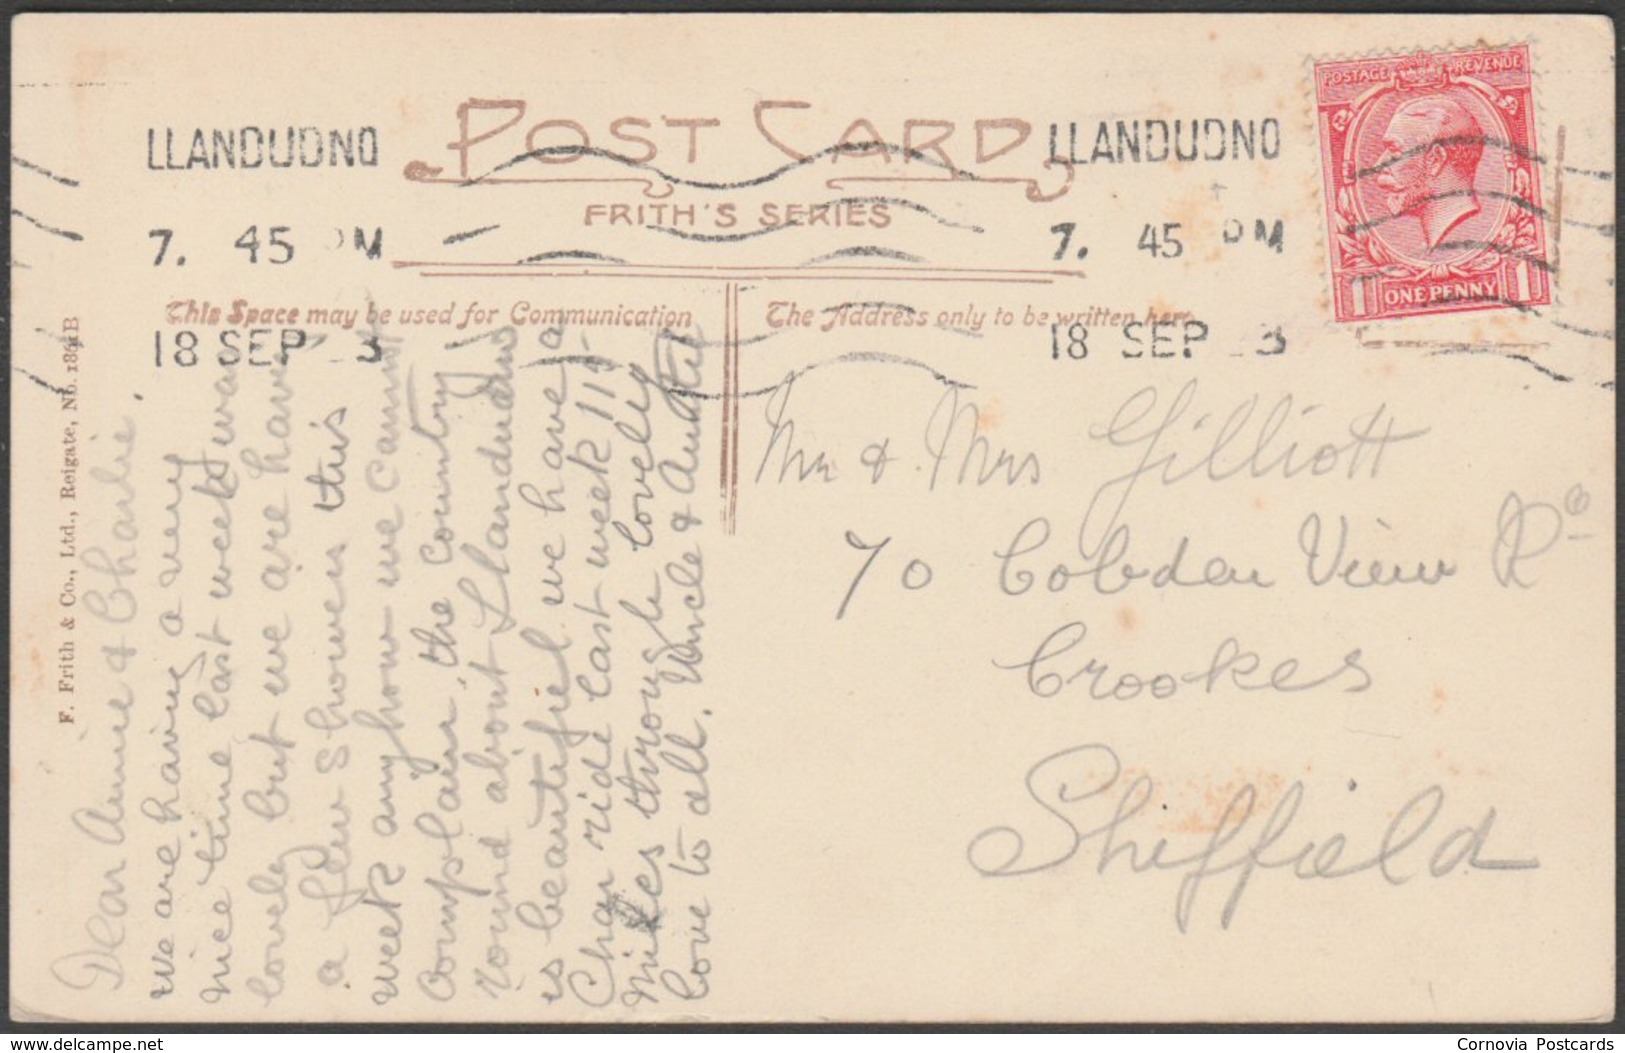 POST CARD
FRITH'S SERIES
LLANDUDNO
7. 45 PM
18 SEP 3
LLANDUDNO
7. 45 PM
18 SEP 3
POSTAGE REVENUE
1 ONE PENNY 1
This Space may be used for Communication
The Address only to be written here
F. Frith & Co., Ltd., Reigate, No.
Dear Annie & Charlie.
we are having a very
nice time last week was
lovely but we are have
a few showers this
week anyhow we cannot
complain, the country
round about Llandudno
is beautiful we have a
Char ride last week 115
miles through lovely
love to all. Uncle & Auntie
Mr & Mrs Gilliott
70 Cobden View Rd
Crookes
Sheffield
delcampe.net
Cornovia Postcards